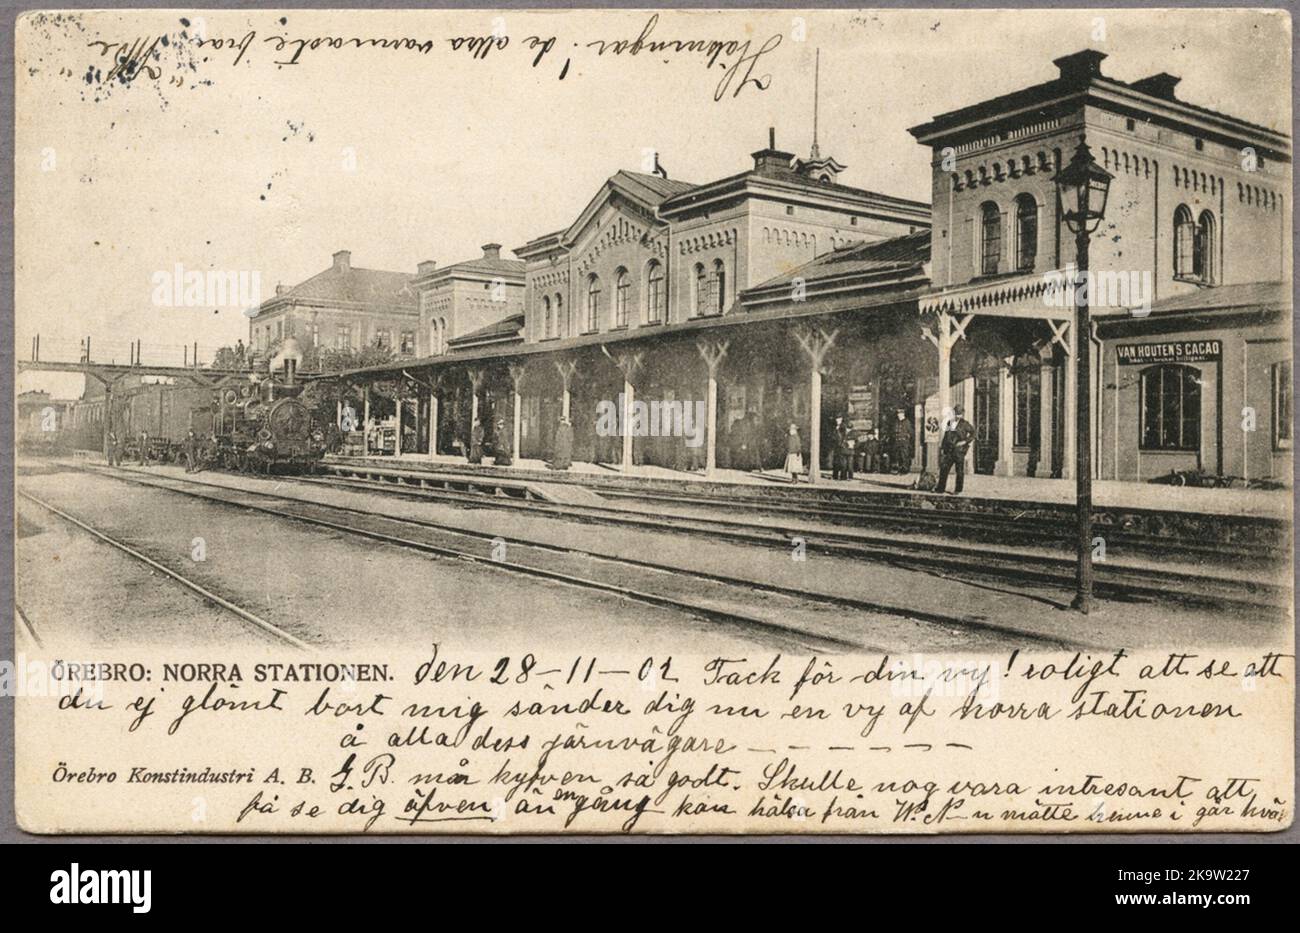 Hälsningar! de allra varmaste från
VAN HOUTEN'S CACAO
ÖREBRO: NORRA STATIONEN. den 28-11-02 Tack för din vy! roligt att se att
du ej glömt bort mig sänder dig nu en vy af norra stationen
å alla dess järnvägare — — — — — —
Örebro Konstindustri A. B. G. B. mår kyfven så godt. Skulle nog vara intresant att
få se dig äfven än en gång kan hälsa från W. N—n mätte henne i går kvä
alamy
Image ID: K9W227
www.alamy.com